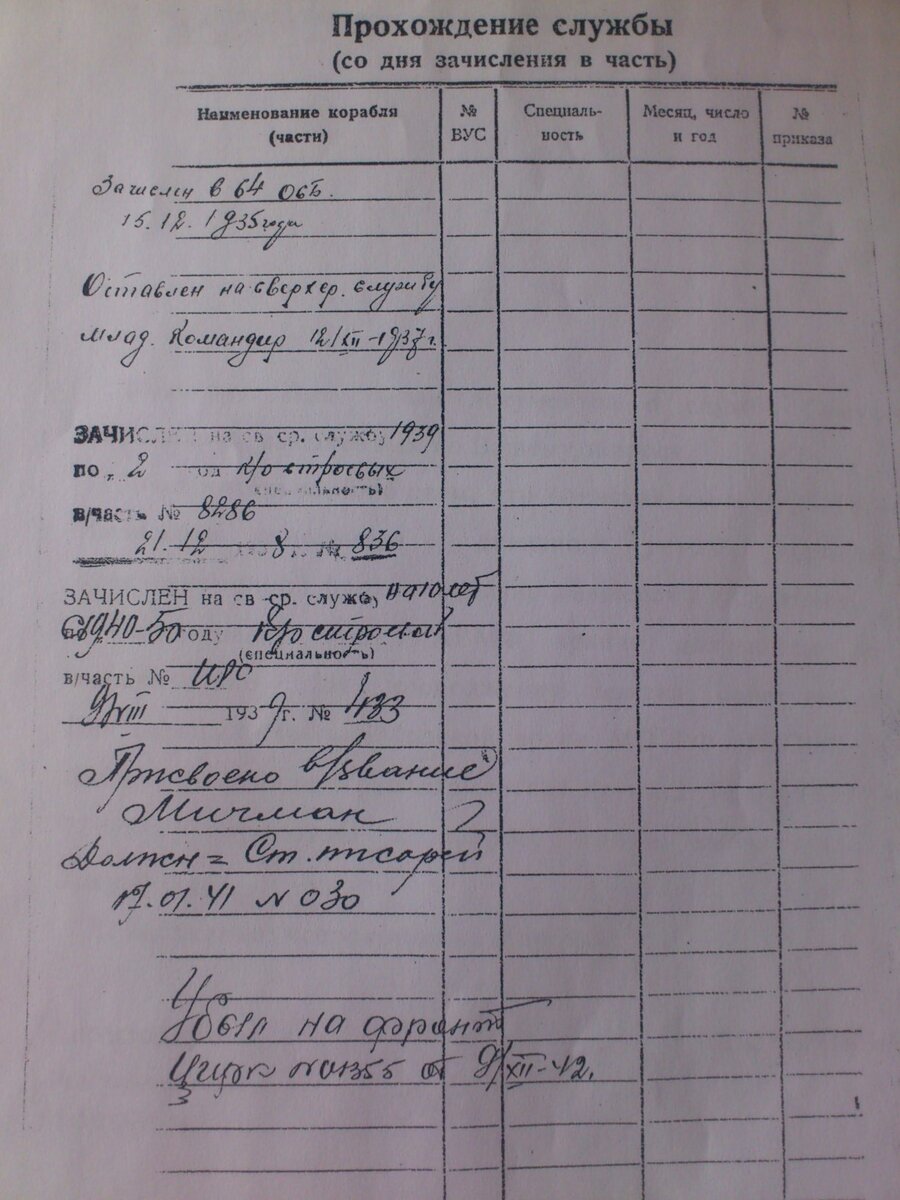 Прохождение службы
(со дня зачисления в часть)
Наименование корабля (части)
№ ВУС
Специаль-ность
Месяц, число и год
№ приказа
Зачислен в 64 ОСБ.
15.12.1935 года
Оставлен на сверхср. службу
млад. Командир 12/XII-1937 г.
ЗАЧИСЛЕН на св ср. службу 1939
по 2 од к/о строевых
(специальность)
в/часть № 8286
21.12 1938 г. № 836
ЗАЧИСЛЕН на св ср. службу на 10 лет
с 1940-50 году к/о строевой
(специальность)
в/часть №
VIII 1939 г. № 433
Присвоено в/звание
Мичман
Должн = Ст. писарей
17.01.41 N 030
Убыл на фронт
Цирк №01355 от 9/XII-42.